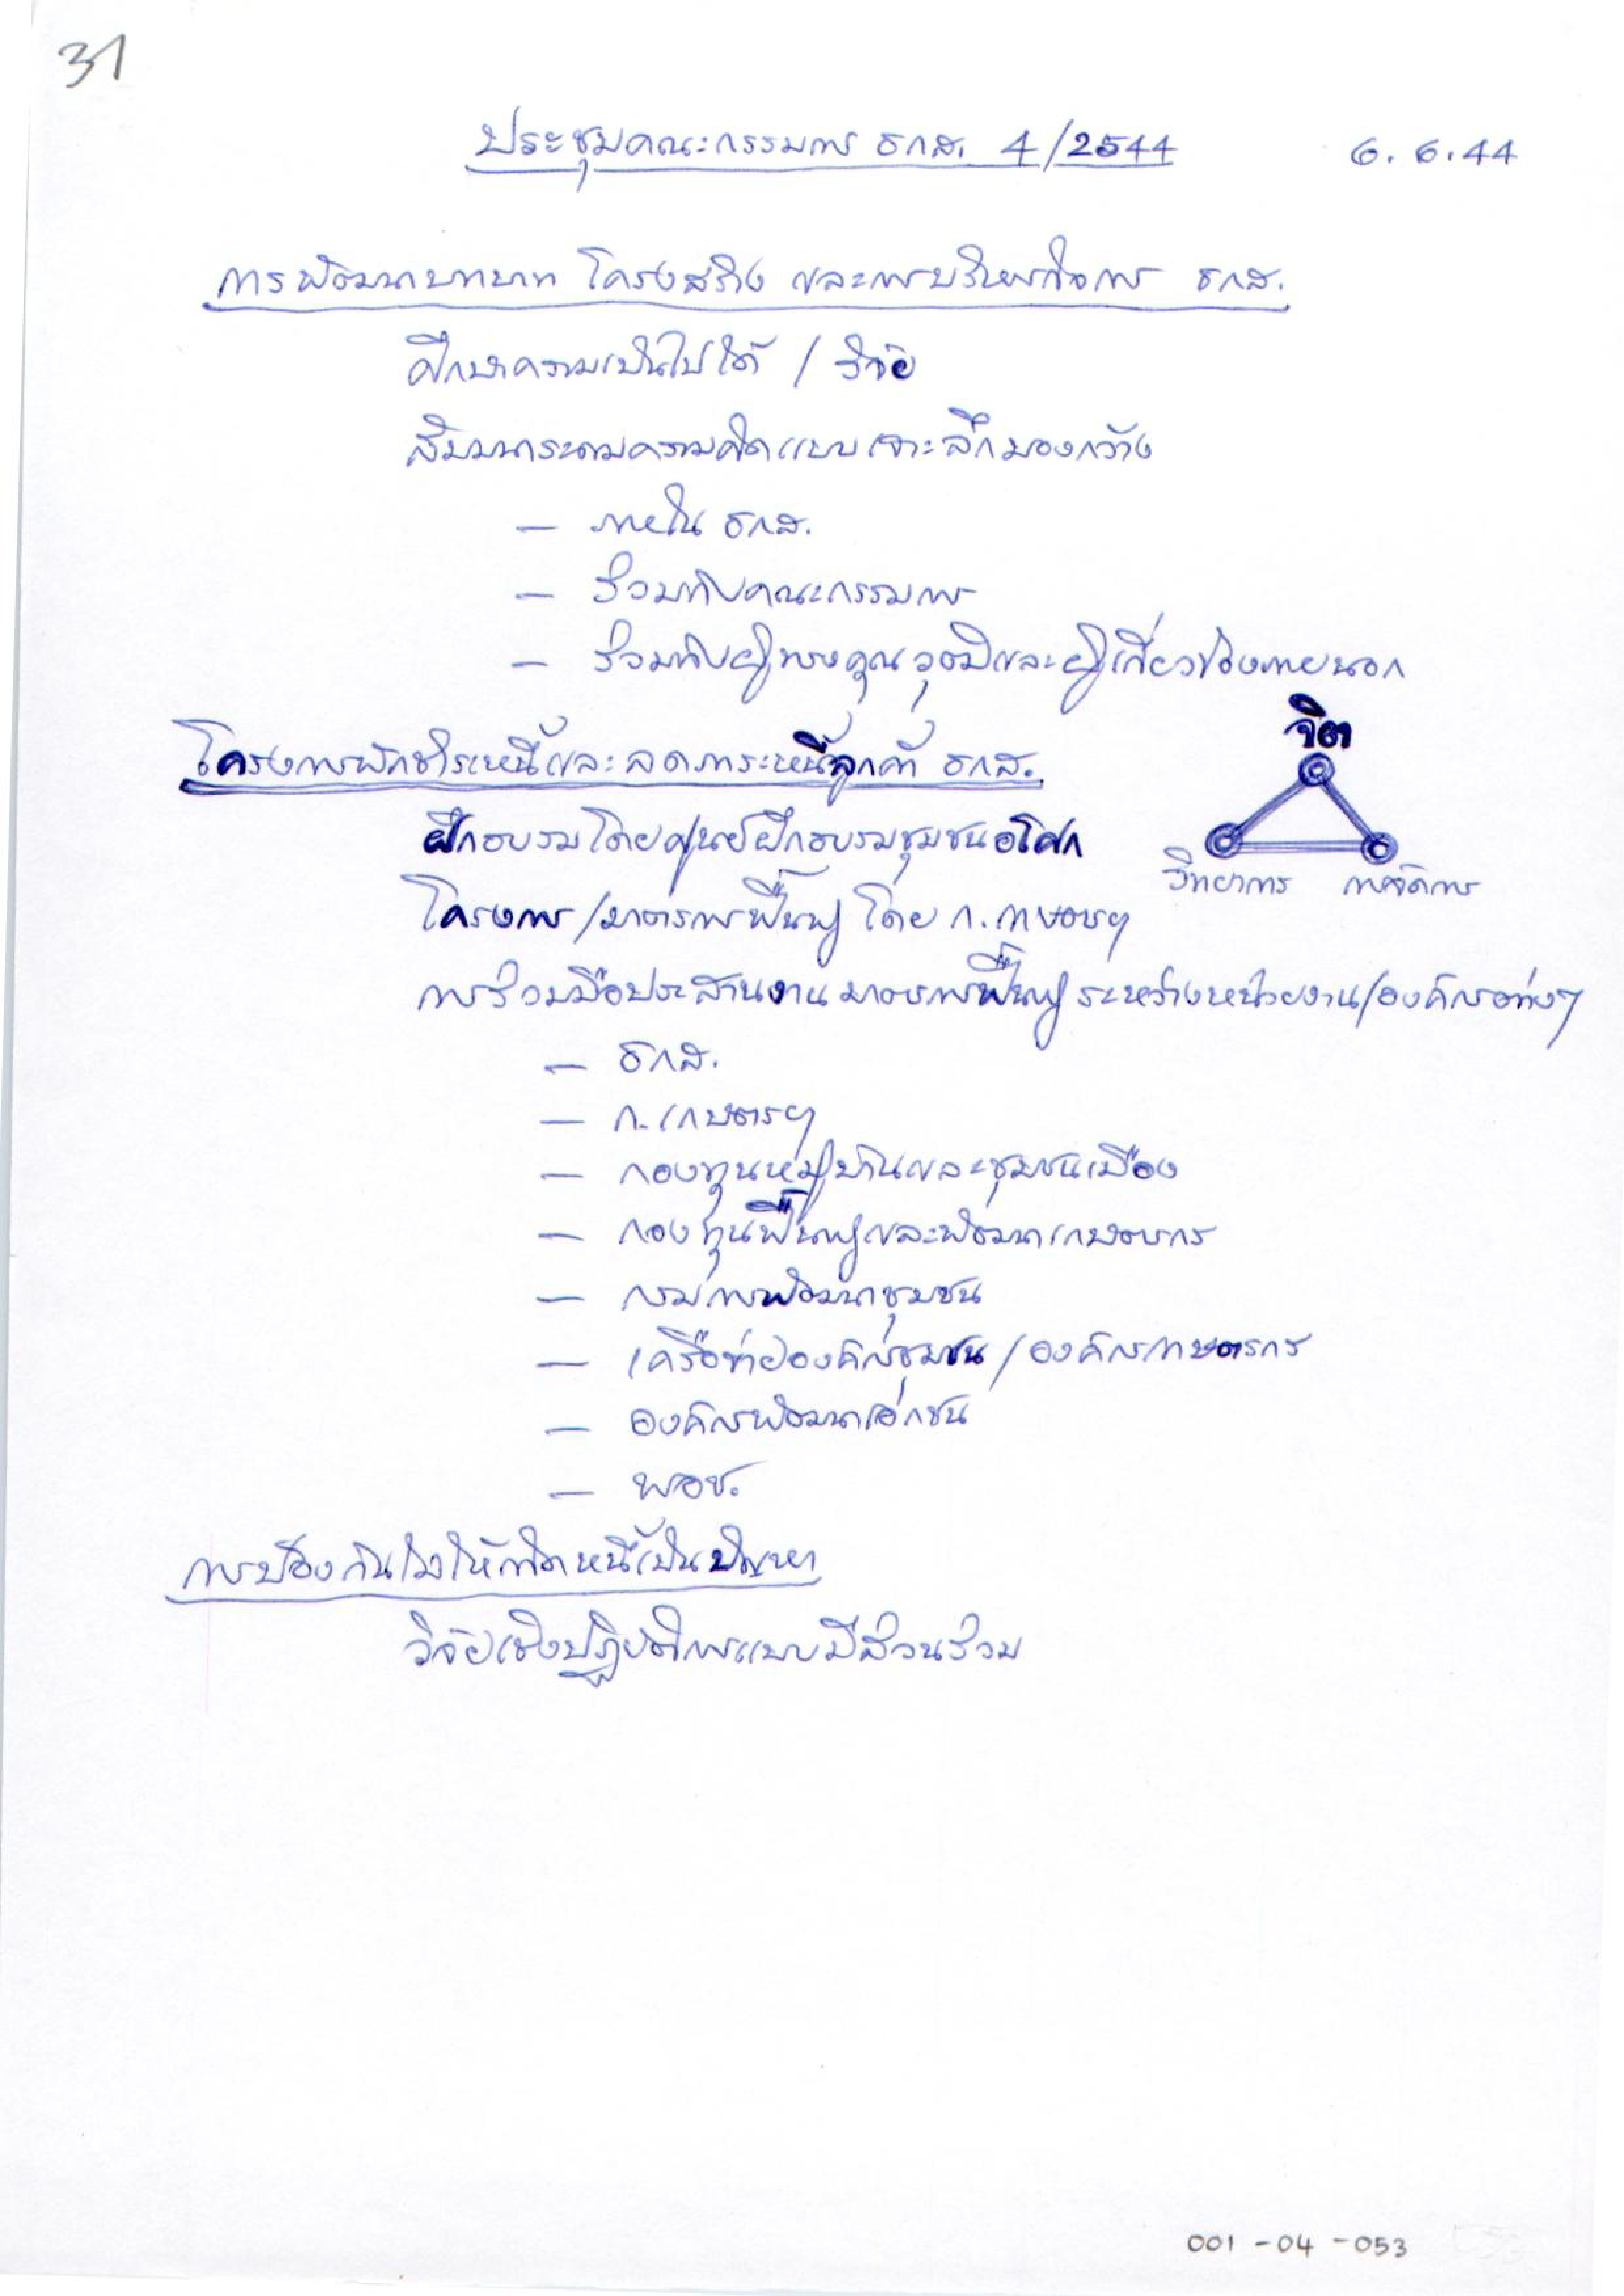 31
ประชุมคณะกรรมการ ธกส. 4/2544
6.6.44
การพัฒนาบทบาท โครงสร้าง และการบริหารจัดการ ธกส.
ศึกษาความเป็นไปได้ / วิจัย
สัมมนาระดมความคิดแบบเจาะลึกมองกว้าง
— ภายใน ธกส.
— ร่วมกับคณะกรรมการ
— ร่วมกับผู้ทรงคุณวุฒิและผู้เกี่ยวข้องภายนอก
จิต
โครงการพักชำระหนี้และลดภาระหนี้ลูกค้า ธกส.
ฝึกอบรมโดยศูนย์ฝึกอบรมชุมชนอโศก
วิทยาการ การจัดการ
โครงการ/มาตรการฟื้นฟู โดย ก.เกษตรฯ
การร่วมมือประสานงานมาตรการฟื้นฟู ระหว่างหน่วยงาน/องค์กรต่างๆ
— ธกส.
— ก.เกษตรฯ
— กองทุนหมู่บ้านและชุมชนเมือง
— กองทุนฟื้นฟูและพัฒนาเกษตรกร
— กรมการพัฒนาชุมชน
— เครือข่ายองค์กรชุมชน/องค์กรเกษตรกร
— องค์กรพัฒนาเอกชน
— พอช.
การป้องกันไม่ให้เกิดหนี้เป็นปัญหา
วิจัยเชิงปฏิบัติการแบบมีส่วนร่วม
001-04-053